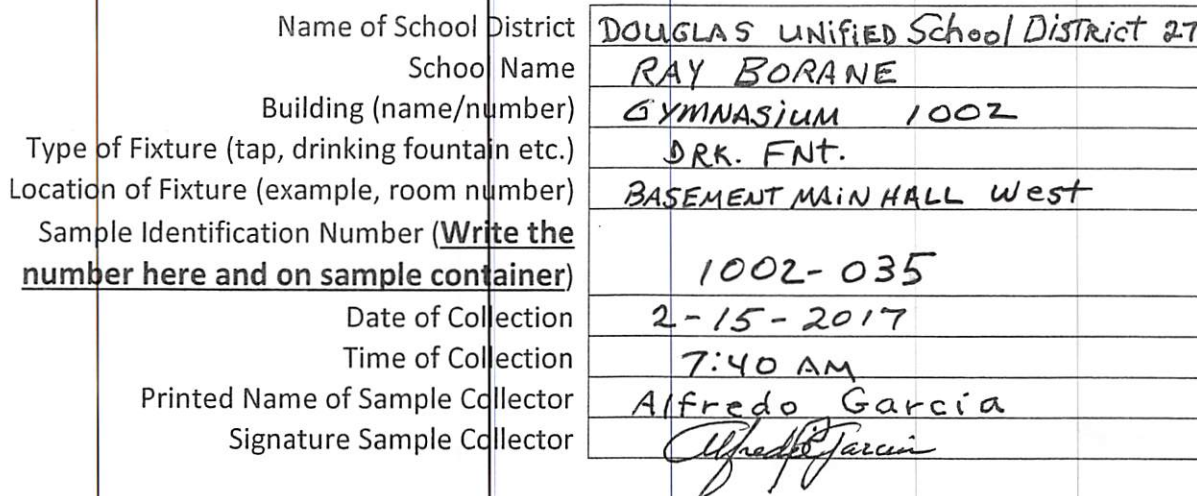 Name of School District DOUGLAS UNiFiED School DisTRict 27
School Name RAY BORANE
Building (name/number) GYMNASiUM 1002
Type of Fixture (tap, drinking fountain etc.) DRK. FNt.
Location of Fixture (example, room number) BASEMENT MAiN HALL West
Sample Identification Number (Write the
number here and on sample container) 1002-035
Date of Collection 2-15-2017
Time of Collection 7:40 AM
Printed Name of Sample Collector Alfredo Garcia
Signature Sample Collector Alfredo Garcia